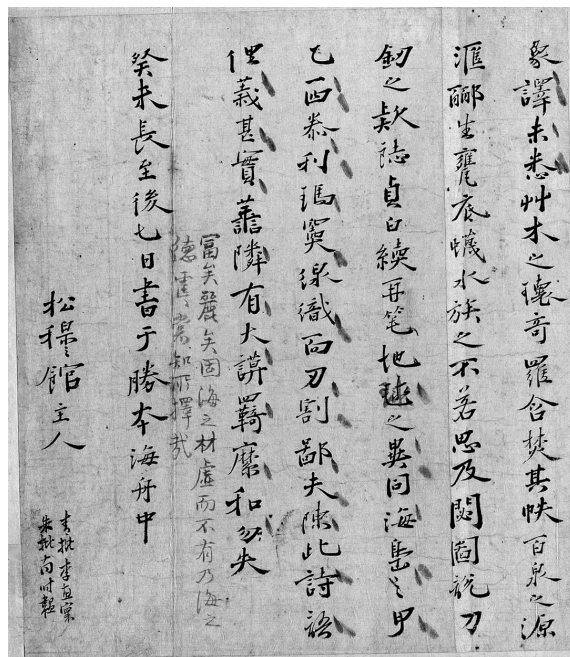 象譯未悉艸木之瓌奇羅含焚其帙百泉之源
滙酈生甕底蠛水族之不若思及閟圖說刀
釰之欵誌貞白續再筆地毬之異同海島之甲
乙西泰利瑪竇線織而刀割鄙夫陳此詩語
俚義甚實善隣有大謨羈縻和勿失
富矣麗矣固海之材虛而不有乃海之
德 知所擇哉
癸未長至後七日書于勝本海舟中
松穆館主人
青批李
朱批南时韞